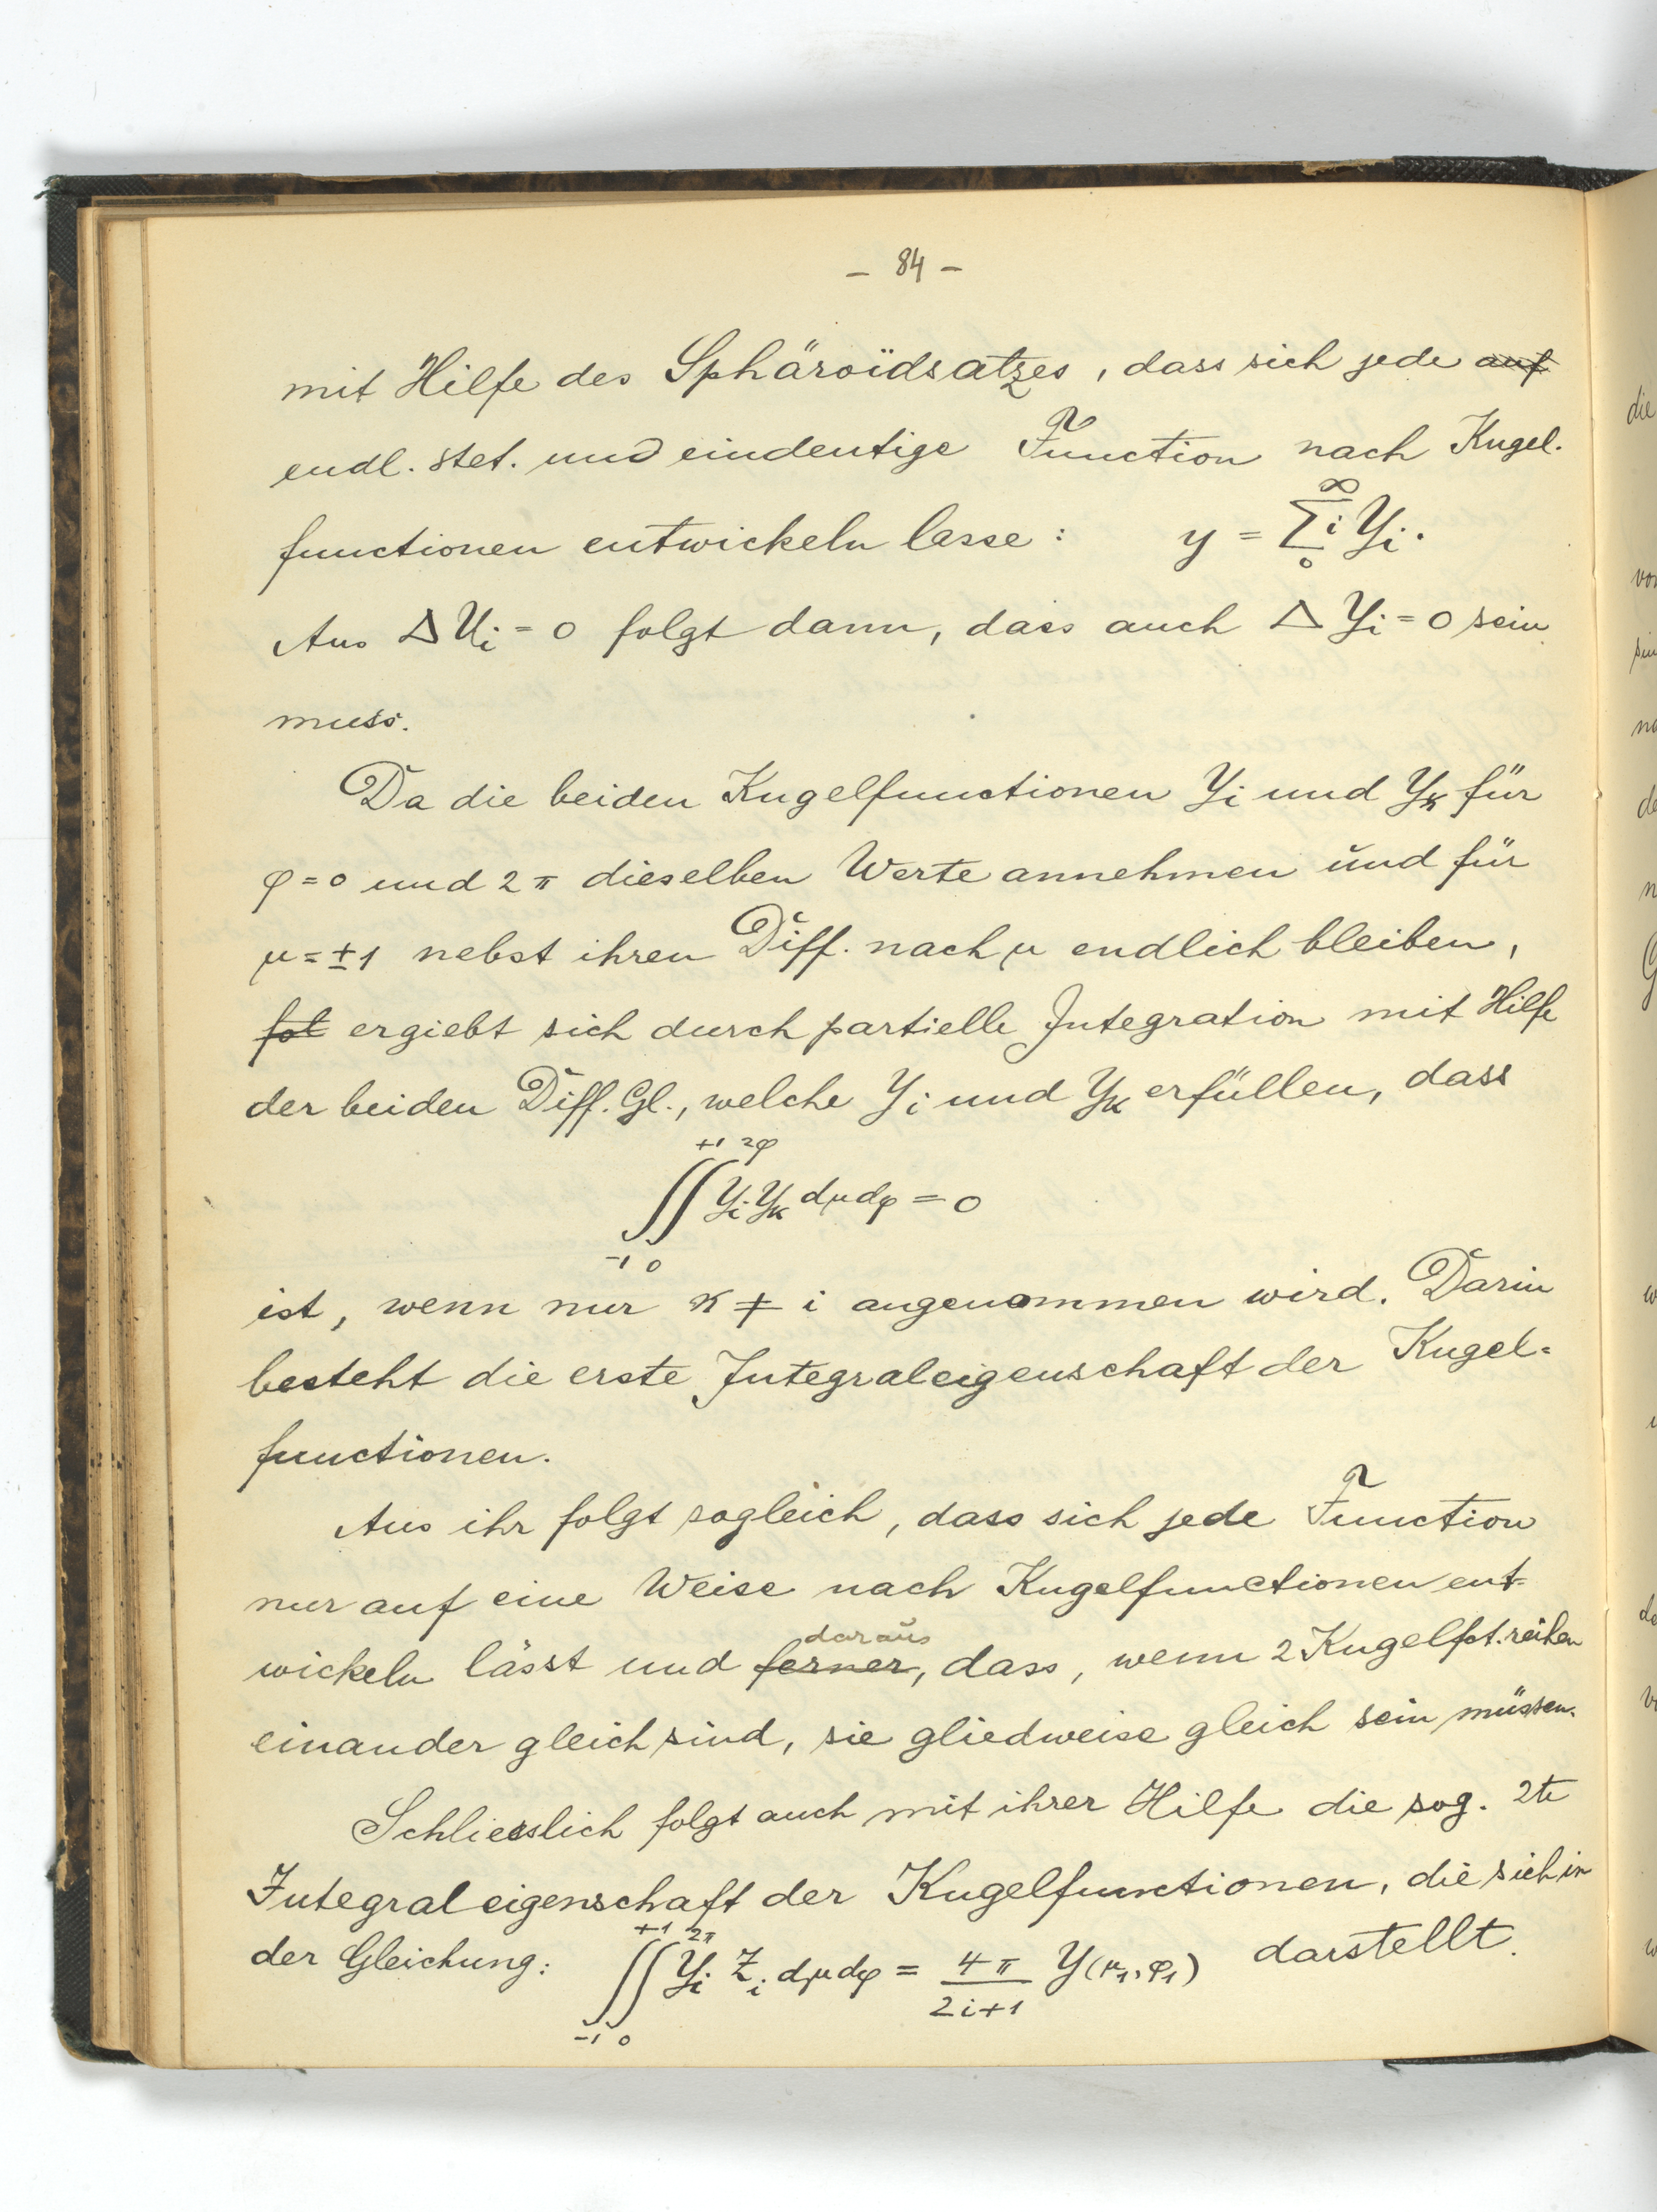 – 84 –
mit Hilfe des Sphäroïdsatzes, dass sich jede ~~auf~~
endl. stet. und eindeutige Function nach Kugel-
functionen entwickeln lasse: y = ∑_0^∞ i Y_i.
Aus Δ U_i = 0 folgt dann, dass auch Δ Y_i = 0 sein
muss.
Da die beiden Kugelfunctionen Y_i und Y_k für
φ = 0 und 2π dieselben Werte annehmen und für
μ = ±1 nebst ihren Diff. nach μ endlich bleiben,
~~fol~~ ergiebt sich durch partielle Integration mit Hilfe
der beiden Diff. Gl., welche Y_i und Y_k erfüllen, dass
∫_{-1}^{+1} ∫_0^{2φ} Y_i Y_k dμ dφ = 0
ist, wenn nur k ≠ i angenommen wird. Darin
besteht die erste Integraleigenschaft der Kugel-
functionen.
Aus ihr folgt sogleich, dass sich jede Function
nur auf eine Weise nach Kugelfunctionen ent-
wickeln lässt und ~~ferner~~ daraus, dass, wenn 2 Kugelfct. reihen
einander gleich sind, sie gliedweise gleich sein müssen.
Schliesslich folgt auch mit ihrer Hilfe die sog. 2te
Integraleigenschaft der Kugelfunctionen, die sich in
der Gleichung: ∫_{-1}^{+1} ∫_0^{2π} Y_i Z_i dμ dφ = \frac{4π}{2i+1} Y(μ_1, φ_1) darstellt.